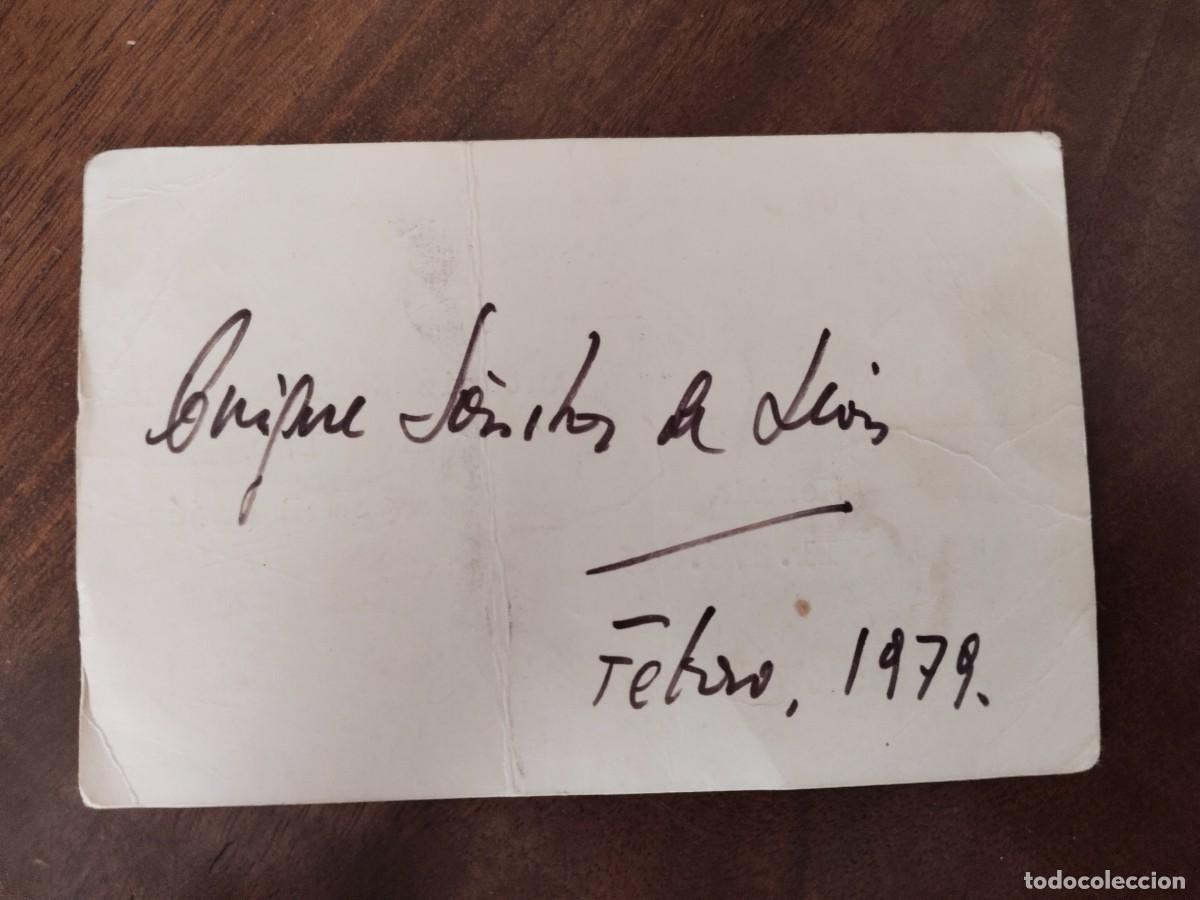 Enrique Sánchez de León
Febrero, 1979.
todocoleccion